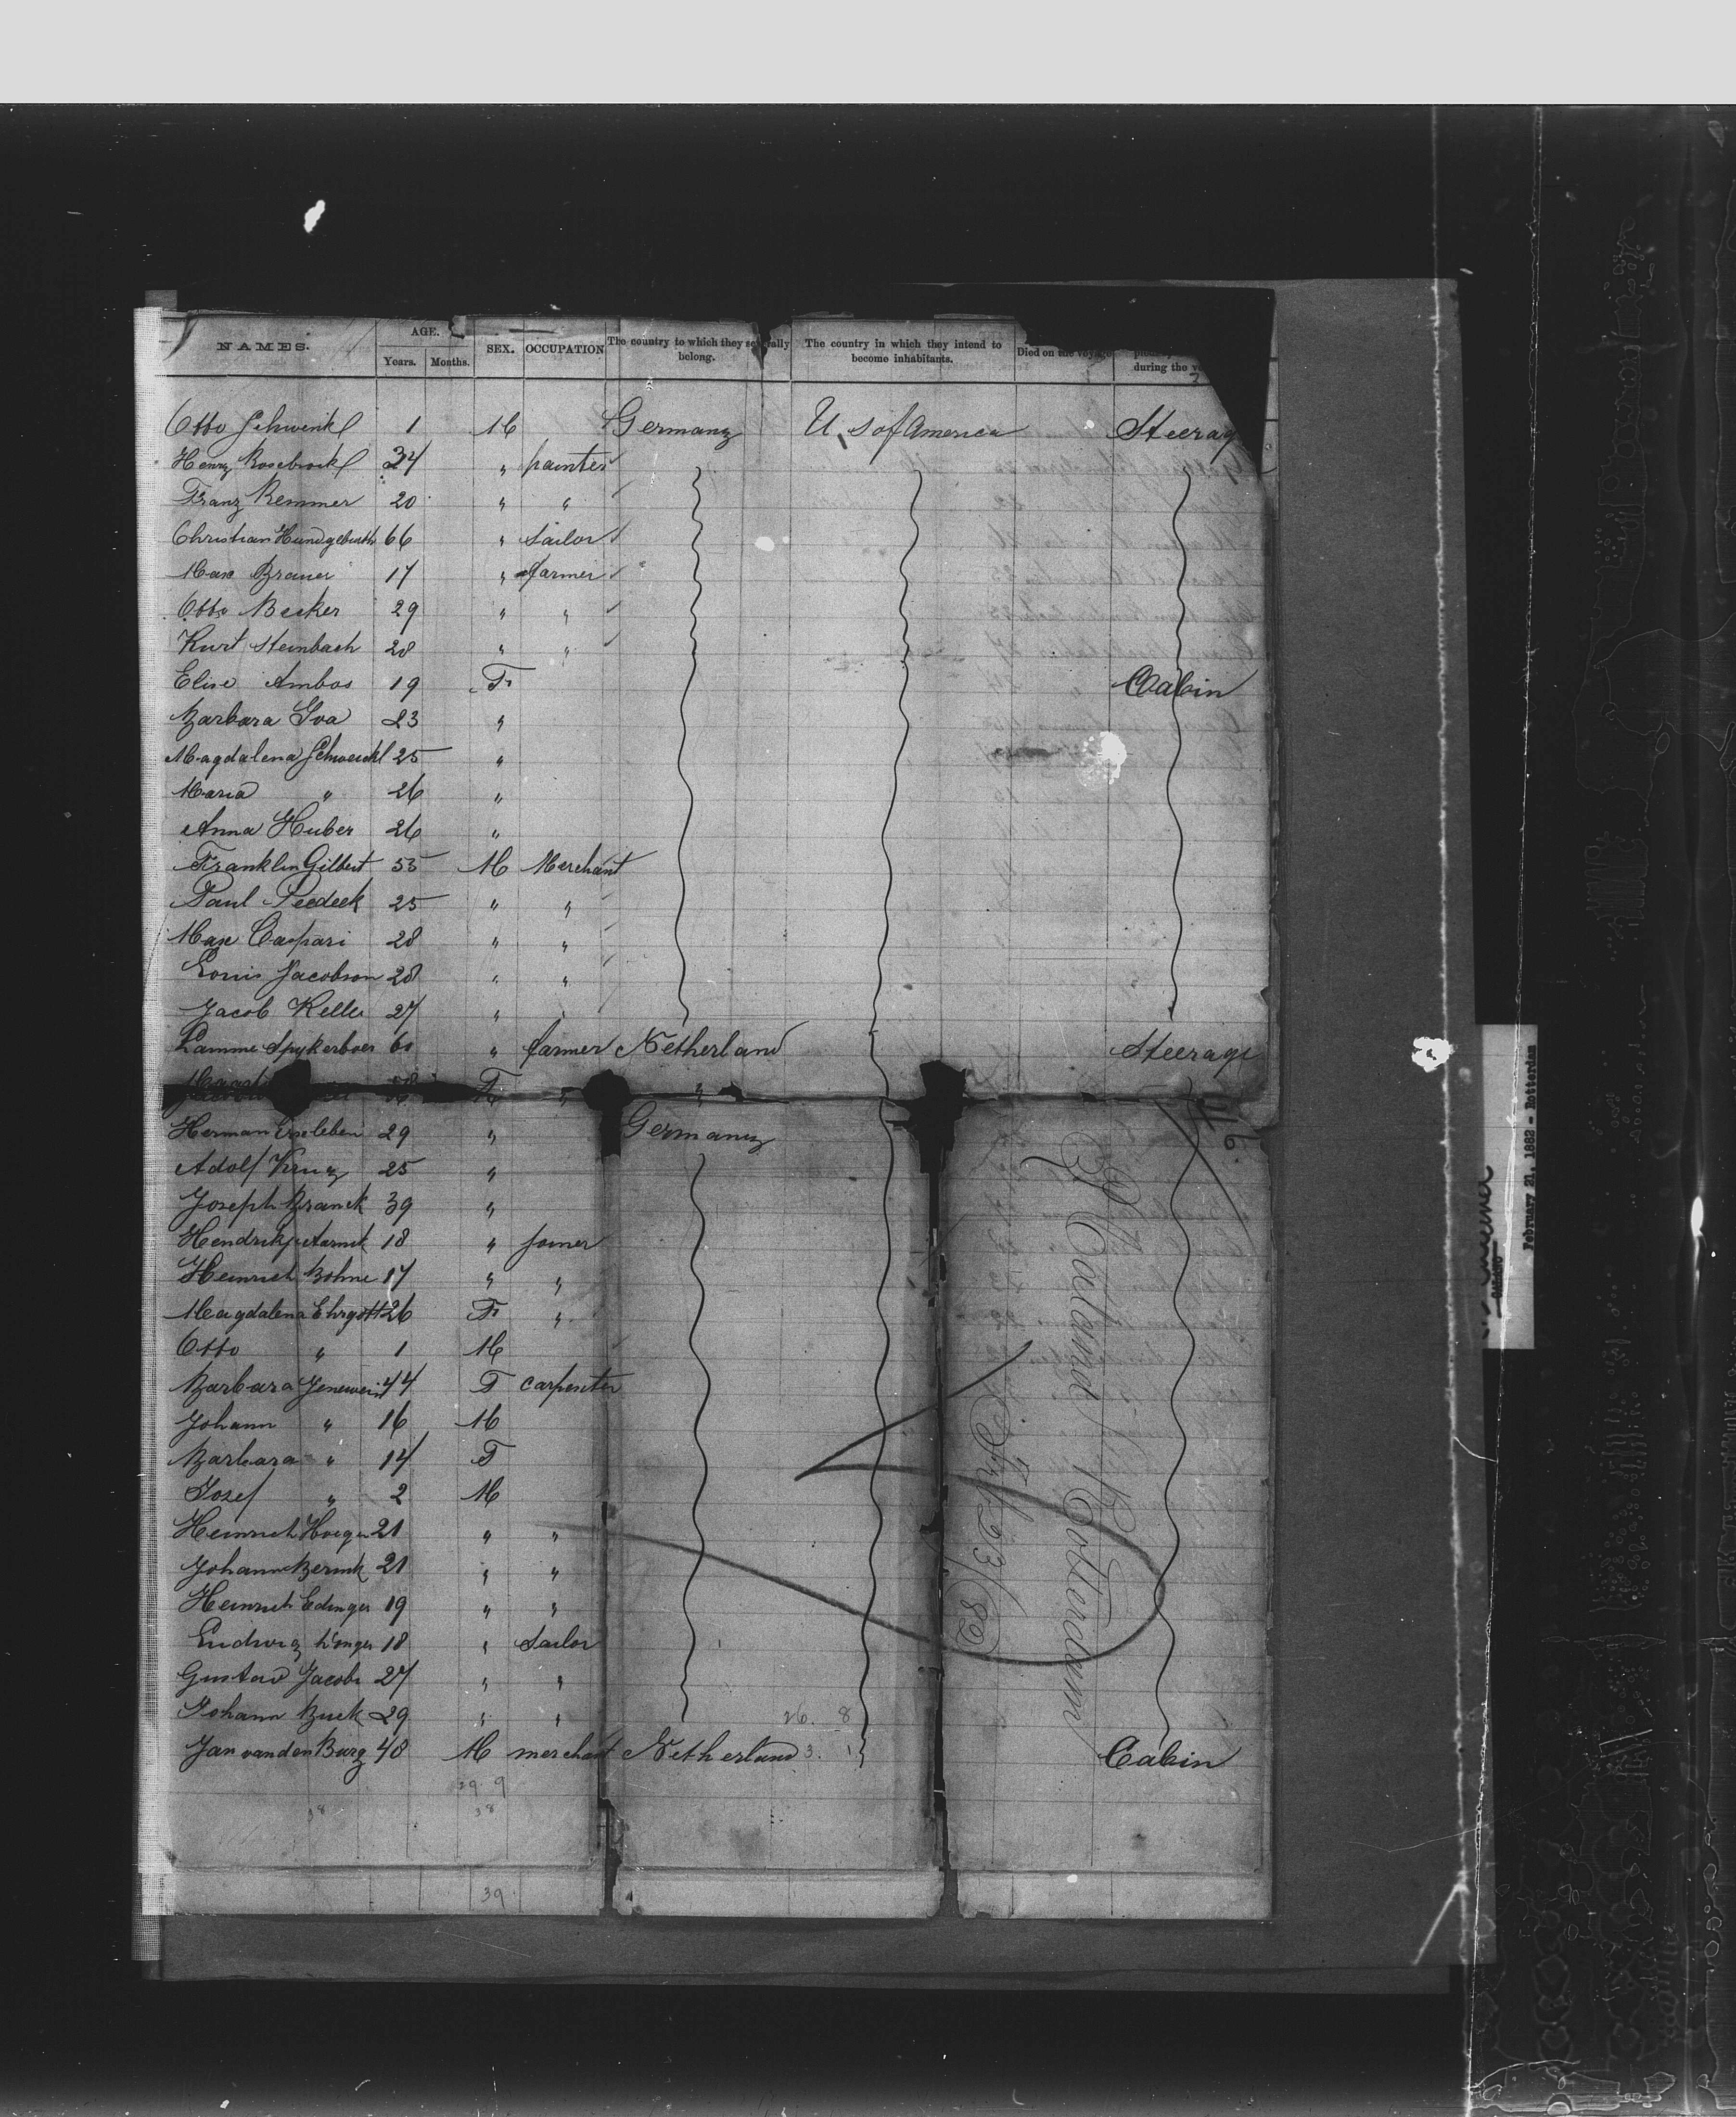 NAMES. AGE. Years. Months. SEX. OCCUPATION The country to which they severally belong. The country in which they intend to become inhabitants. Died on the voyage during the
Otto Schwenkl 1 M Germany U. S of America Steerage
Henry Rosebrockl 34 " painter
Franz Remmer 20 " "
Christian Hundgeburth 66 " sailor
Max Brauer 17 " farmer
Otto Becker 29 " "
Kurt Steinbach 28 " "
Elise Ambos 19 F Cabin
Barbara Iva 23 "
Magdalena Schweickl 25 "
Maria " 26 "
Anna Huber 26 "
Franklin Gilbert 55 M Merchant
Paul Peedeck 25 " "
Max Caspari 28 " "
Louis Jacobson 28 " "
Jacob Keller 27 " "
Lamme Spykerboer 60 " farmer Netherland Steerage
F " "
Herman Erxleben 29 " Germany
Adolf Kruz 25 "
Joseph Branck 39 "
Hendrik 18 " joiner
Heinrich Bohne 17 " "
Magdalena Ehrgott 26 F "
Otto " 1 M
Barbara Jenewein 44 F carpenter
Johann " 16 M
Barbara " 14 F
Josef " 2 M
Heinrich Hoeger 21 " "
Johann Berink 21 " "
Heinrich Edinger 19 " "
Ludwig 18 " Sailor
Gustav Jacobi 27 " "
Johann Buck 29 " "
26. 8
Jan van den Burg 48 M merchant Netherland 3. 1 Cabin
29 9
38 38
39
Rotterdam
February 21, 1882 - Rotterdam